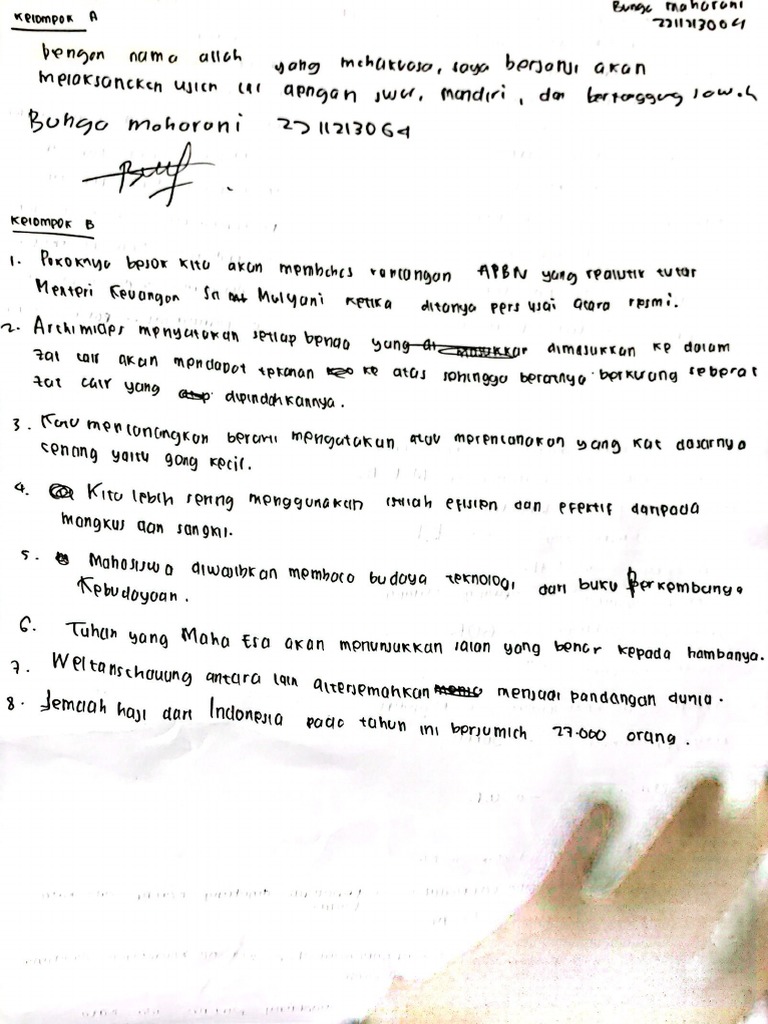 Kelompok A
Bunga maharani
2211213064
Dengan nama allah yang mahakuasa, saya berjanji akan
melaksanakan ujian ini dengan jujur, mandiri, dan bertanggung jawab
Bunga maharani 2211213064
Kelompok B
1. Pokoknya besok kita akan membahas rancangan APBN yang realistik tutur
Menteri Keuangan Sri Mulyani ketika ditanya pers usai acara resmi.
2. Archimides menyatakan setiap benda yang dimasukkan ke dalam
zat cair akan mendapat tekanan ke atas sehingga beratnya berkurang seberat
zat cair yang dipindahkannya.
3. Kata mencanangkan berarti mengatakan atau merencanakan yang kat dasarnya
canang yaitu gong kecil.
4. Kita lebih sering menggunakan istilah efisien dan efektif daripada
mangkus dan sangkil.
5. Mahasiswa diwajibkan membaca budaya teknologi dari buku Perkembanga
Kebudayaan.
6. Tuhan yang Maha Esa akan menunjukkan jalan yang benar kepada hambanya.
7. Weltanschauung antara lain diterjemahkan menjadi pandangan dunia.
8. Jemaah haji dari Indonesia pada tahun ini berjumlah 27.000 orang.